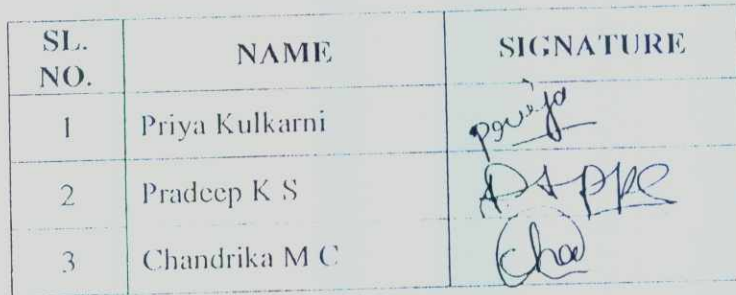 SL. NO. NAME SIGNATURE
1 Priya Kulkarni
2 Pradeep K S
3 Chandrika M C